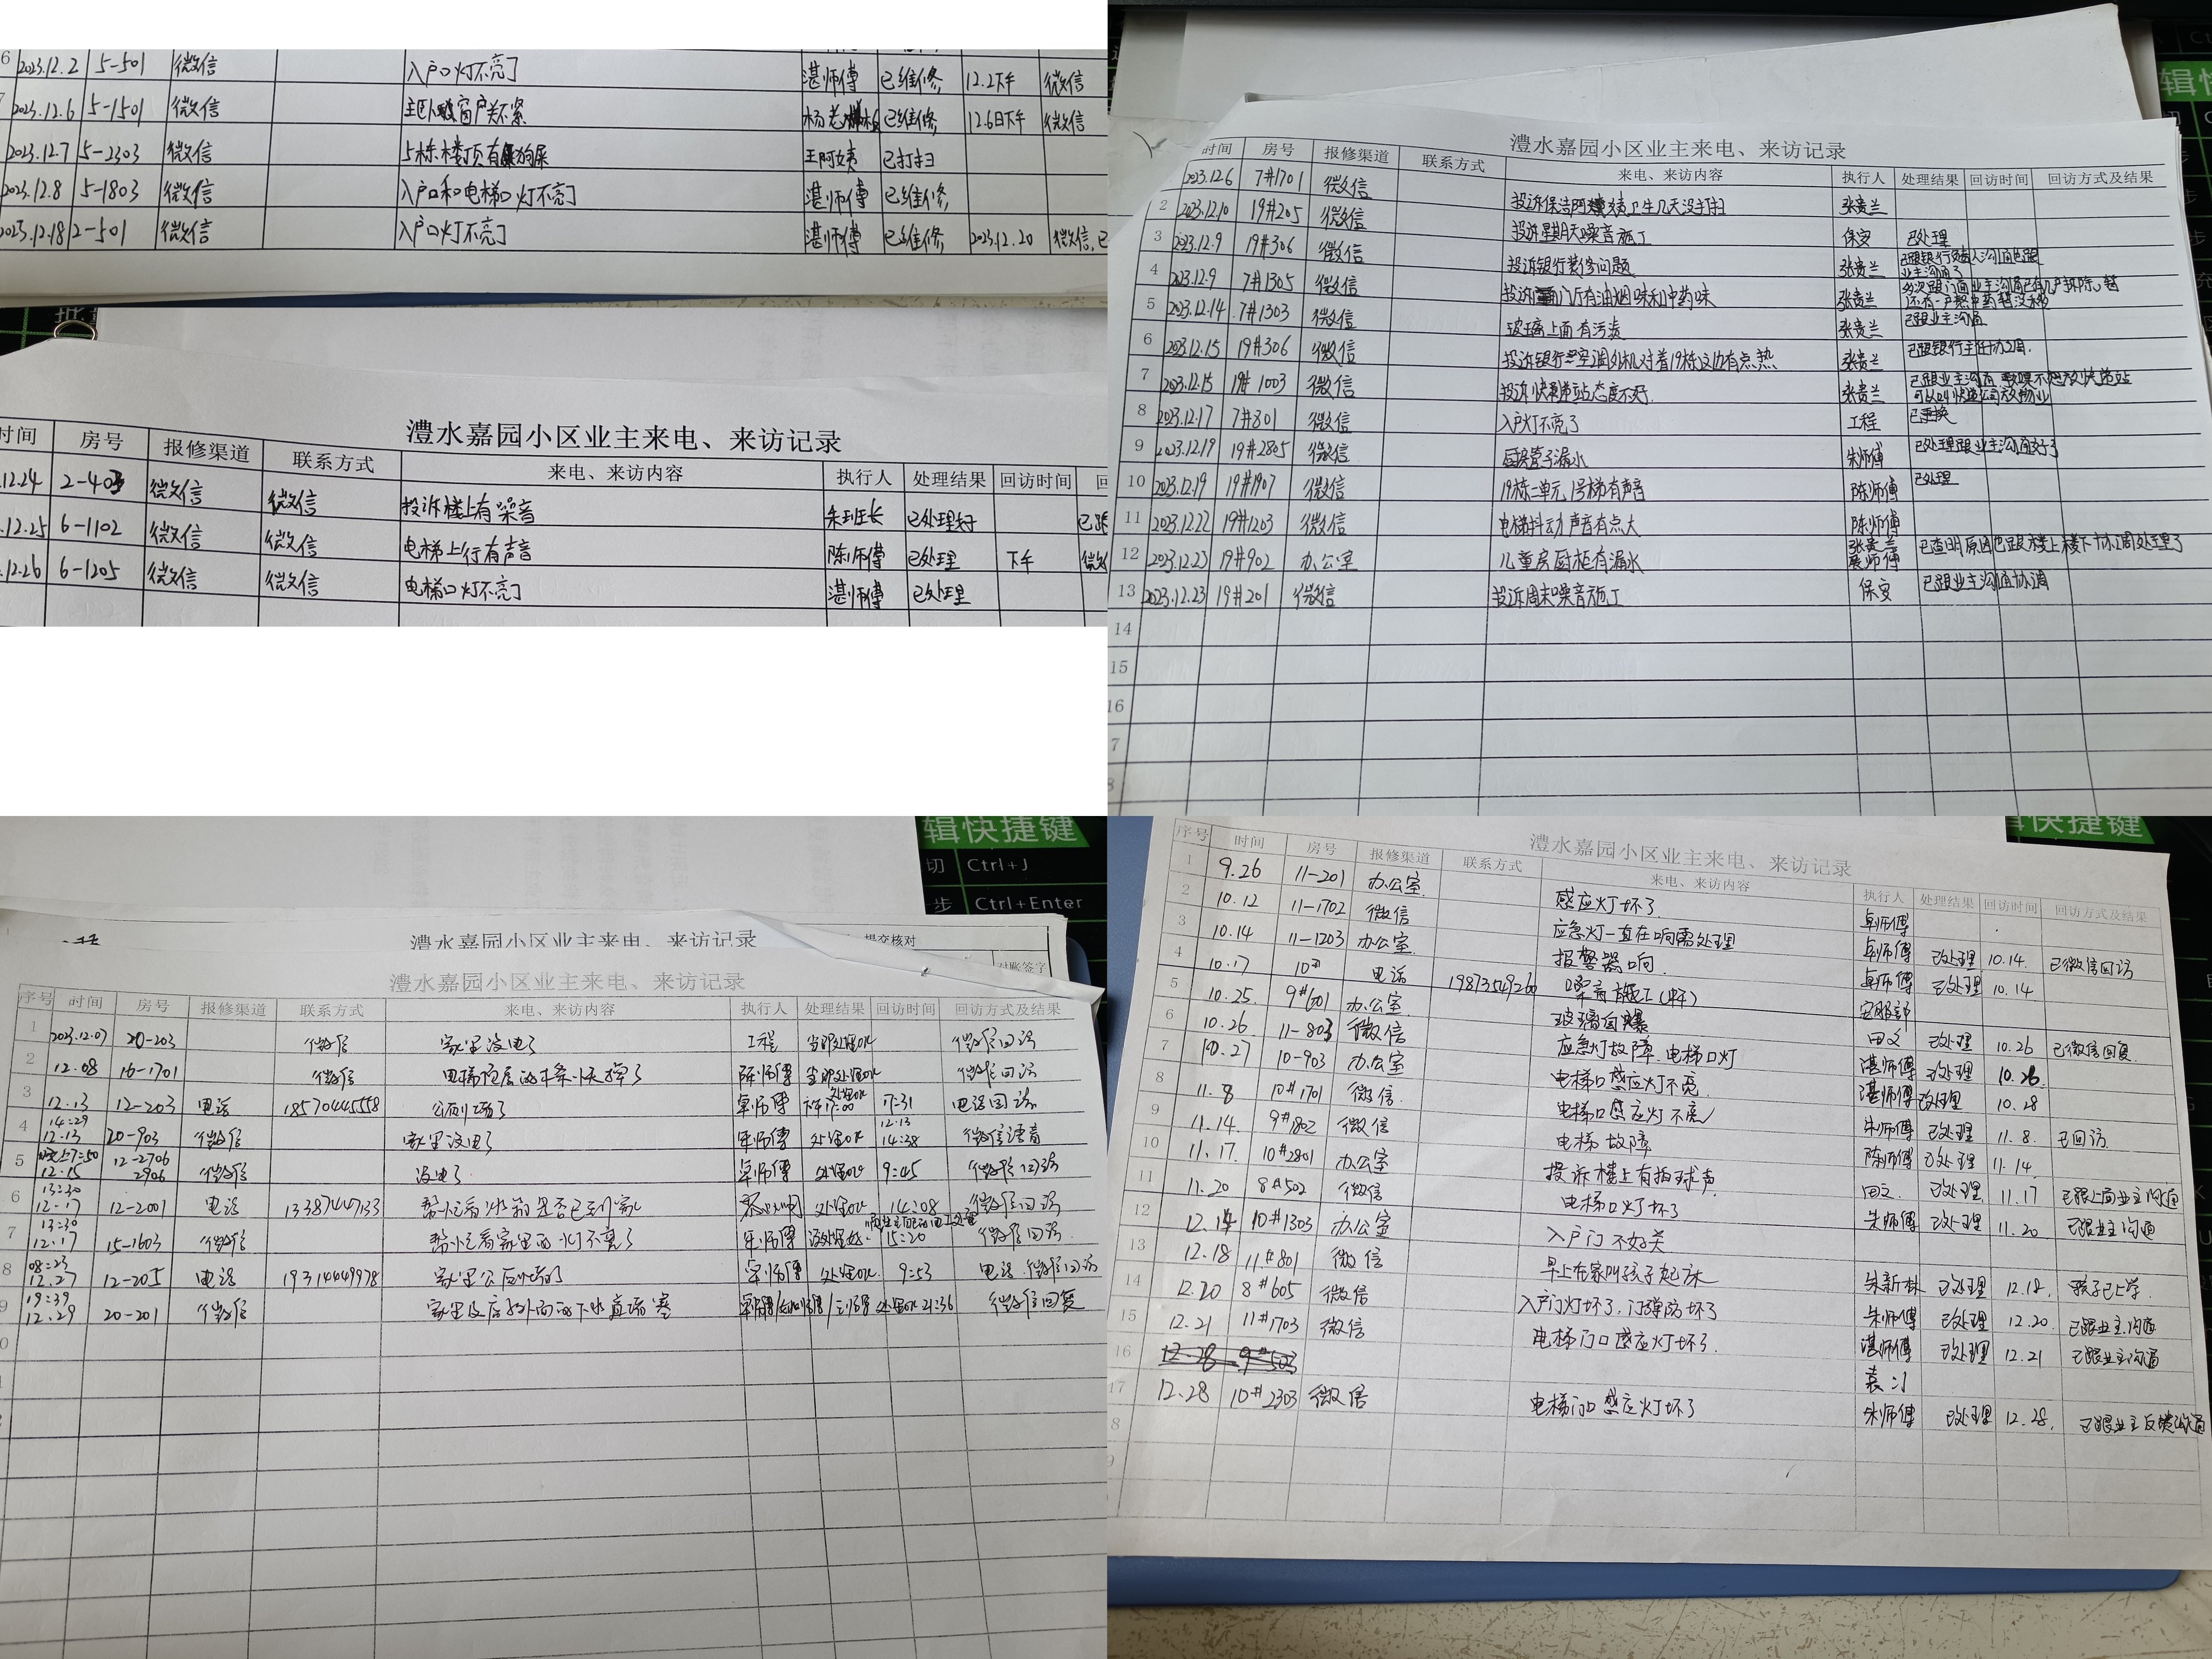 6 2023.12.2 5-501 微信 入户口灯不亮了 湛师傅 已维修 12.2下午 微信
7 2023.12.6 5-1501 微信 窗户关不紧 已维修 12.6日下午 微信
2023.12.7 5-2303 微信 5栋楼顶有狗屎 王阿姨 已打扫
2023.12.8 5-1803 微信 入户口和电梯口灯不亮了 湛师傅 已维修
2023.12.18 2-501 微信 入户口灯不亮了 湛师傅 已维修 2023.12.20 微信,已
澧水嘉园小区业主来电、来访记录
时间 房号 报修渠道 联系方式 来电、来访内容 执行人 处理结果 回访时间 回
.12.24 2-403 微信 微信 投诉楼上有噪音 朱班长 已处理好 已跟
.12.25 6-1102 微信 微信 电梯上行有声音 陈师傅 已处理 下午 微信
.12.26 6-1205 微信 微信 电梯口灯不亮了 湛师傅 已处理
澧水嘉园小区业主来电、来访记录
时间 房号 报修渠道 联系方式 来电、来访内容 执行人 处理结果 回访时间 回访方式及结果
2023.12.6 7#1701 微信 投诉保洁阿姨卫生几天没打扫 张贵兰
2 2023.12.10 19#205 微信 投诉星期天噪音施工 保安 已处理
3 2023.12.9 19#306 微信 投诉银行装修问题 张贵兰 已跟银行负责人沟通也跟业主沟通了
4 2023.12.9 7#1305 微信 投诉门厅有油烟味和中药味 张贵兰 多次跟门面业主沟通已有几户拆除,
5 2023.12.14 7#1303 微信 玻璃上面有污渍 张贵兰 已跟业主沟通
6 2023.12.15 19#306 微信 投诉银行空调外机对着19栋这边有点热 张贵兰 已跟银行主任协调.
7 2023.12.15 19#1003 微信 投诉快递站态度不好. 张贵兰 已跟业主沟通
8 2023.12.17 7#801 微信 入户灯不亮了 工程 已更换
9 2023.12.19 19#2805 微信 厨房管子漏水 朱师傅 已处理跟业主沟通好了
10 2023.12.19 19#1907 微信 19栋二单元1号梯有声音 陈师傅 已处理
11 2023.12.22 19#1203 微信 电梯抖动声音有点大 陈师傅
12 2023.12.23 19#902 办公室 儿童房厨柜有漏水 张贵兰 已查明原因也跟楼上楼下协调处理了
13 2023.12.23 19#201 微信 投诉周末噪音施工 保安 已跟业主沟通协调
14
15
16
7
8
辑快捷键
切 Ctrl+J
步 Ctrl+Enter
澧水嘉园小区业主来电、来访记录 提交核对
对账签字
澧水嘉园小区业主来电、来访记录
序号 时间 房号 报修渠道 联系方式 来电、来访内容 执行人 处理结果 回访时间 回访方式及结果
1 2023.12.07 20-203 微信 家里没电了 工程 当即处理OK 微信回访
2 12.08 16-1701 微信 陈师傅 当即处理OK 微信回访
3 12.13 12-203 电话 18570445558 卓师傅 17:31 电话回访
4 14:29 12.13 20-903 微信 家里没电了 卓师傅 处理OK 12.13 14:38 微信语音
5 晚上7:50 12.15 12-2706 2906 微信 没电了. 卓师傅 处理OK 9:45 微信回访
6 13:30 12.17 12-2001 电话 13387447133 处理OK 14:08 微信回访
7 13:30 12.17 15-1603 微信 帮忙看家里的灯不亮了 卓师傅 15:20 微信回访.
8 08:23 12.27 12-205 电话 19314449978 卓师傅 处理OK. 9:53 电话.微信回访
9 19:39 12.29 20-201 微信 处理OK 21:36 微信回复
快捷键
澧水嘉园小区业主来电、来访记录
序号 时间 房号 报修渠道 联系方式 来电、来访内容 执行人 处理结果 回访时间 回访方式及结果
1 9.26 11-201 办公室. 感应灯坏了. 卓师傅
2 10.12 11-1702 微信 应急灯一直在响需处理 卓师傅 已处理 10.14. 已微信回访
3 10.14 11-1203 办公室. 报警器响. 卓师傅 已处理 10.14
4 10.17 10# 电话 噪音施工 客服部
5 10.25. 9#601 办公室 玻璃自爆 田文 已处理 10.26 已微信回复
6 10.26 11-803 微信 应急灯故障.电梯口灯 湛师傅 已处理 10.26.
7 10.27 10-903 办公室 电梯口感应灯不亮 湛师傅 已处理 10.28
8 11.8 10#1701 微信. 电梯口感应灯不亮 朱师傅 已处理 11.8. 已回访.
9 11.14. 9#802 微信 电梯故障 陈师傅 已处理 11.14.
10 11.17. 10#2801 办公室 投诉楼上有拍球声. 田文. 已处理. 11.17 已跟上面业主沟通
11 11.20 8#502 微信 电梯口灯坏了 朱师傅 已处理 11.20. 已跟业主沟通
12 12.14 10#1303 办公室 入户门不好关
13 12.18 11#801 微信 早上在家叫孩子起床 朱新林 已处理 12.18. 孩子已上学.
14 12.20 8#605 微信 入户门灯坏了, 朱师傅 已处理 12.20. 已跟业主沟通
15 12.21 11#1703 微信 电梯门口感应灯坏了. 湛师傅 已处理 12.21 已跟业主沟通
16 12.28 9#503
17 12.28 10#2303 微信 电梯门口感应灯坏了 朱师傅 已处理 12.28.
8
9